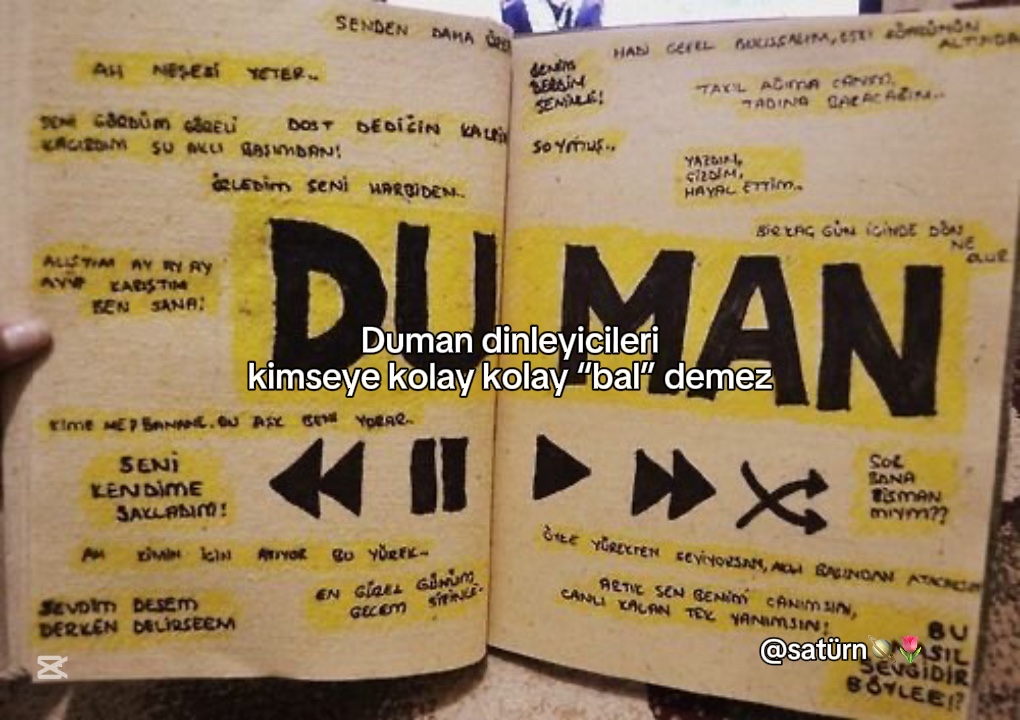 SENDEN DAHA
AH NEŞESİ YETER..
SENİ GÖRDÜM GÖRELİ
KAÇIRDIM ŞU AKLI BAŞIMDAN!
DOST DEDİĞİN KALBİN
ÖZLEDİM SENİ HARBİDEN..
ALIŞTIM AY AY AY
AYIP KARIŞTIM
BEN SANA!
HANİ GEFEL BULUŞSALIM, ESKİ
ALTINDA
BENİM
DERDİM
SENİNLE!
TAKIL AĞIMA CANIM,
TADINA BAKACAĞIM..
SOYMUŞ..
YAZDIM,
ÇİZDİM,
HAYAL ETTİM..
BİRKAÇ GÜN İÇİNDE DÖN
NE
OLUR
DUMAN
Duman dinleyicileri
kimseye kolay kolay “bal” demez
BANANE. BU AŞK BENİ YORAR..
SENİ
KENDİME
SAKLADIM!
AH KİMİN İÇİN ATIYOR BU YÜREK..
SEVDİM DESEM
DERKEN DELİRSEM
EN GÜZEL GÜNÜM
GECEM
SOR
BANA
PİŞMAN
MIYIM??
ÖYLE YÜREKTEN SEVİYORSAN, AKLI BAŞINDAN ATACAKSIN
ARTIK SEN BENİM CANIMSIN,
CANLI KALAN TEK YANIMSIN!
BU
SEVGİDİR
BÖYLEE!?
@satürn🪐🌷